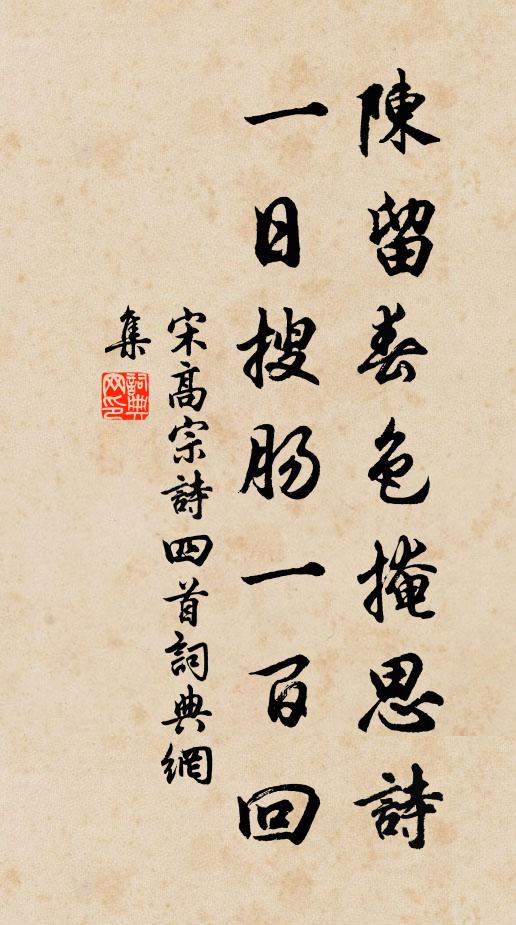 陳留春色掩思詩
一日搜肠一百回
宋高宗詩四首詞典網
集
詞典
网印